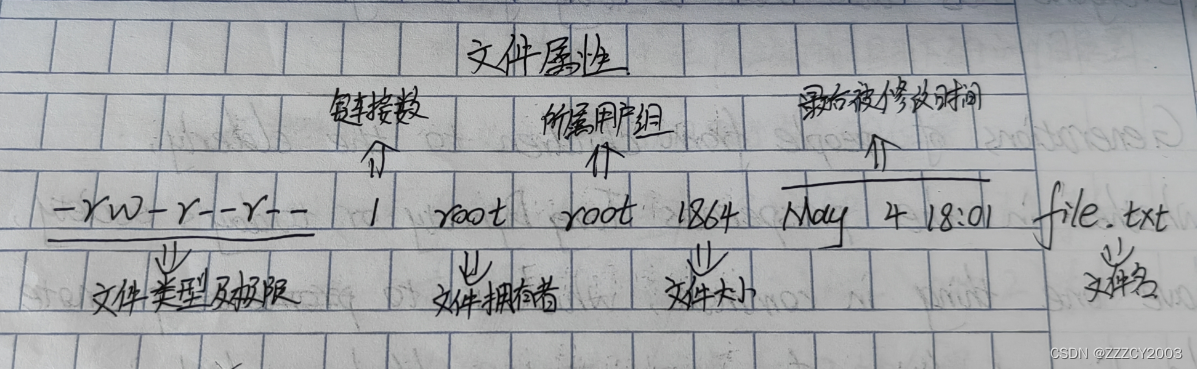 文件属性
链接数 所属用户组 最后被修改时间
-rw-r--r-- 1 root root 1864 May 4 18:01 file.txt
文件类型及权限 文件拥有者 文件大小 文件名
CSDN @ZZZCY2003